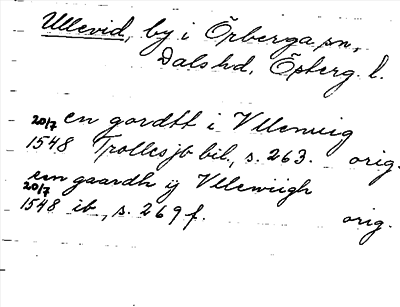 Ullevid, by i Örberga sn,
Dals hd, Österg. l.
20/7 en gordtt i Vllenuig
1548 Trolles jb bil., s. 263. orig.
een gaardh ij Vllewiigh
20/7
1548 ib, s. 269 f. orig.